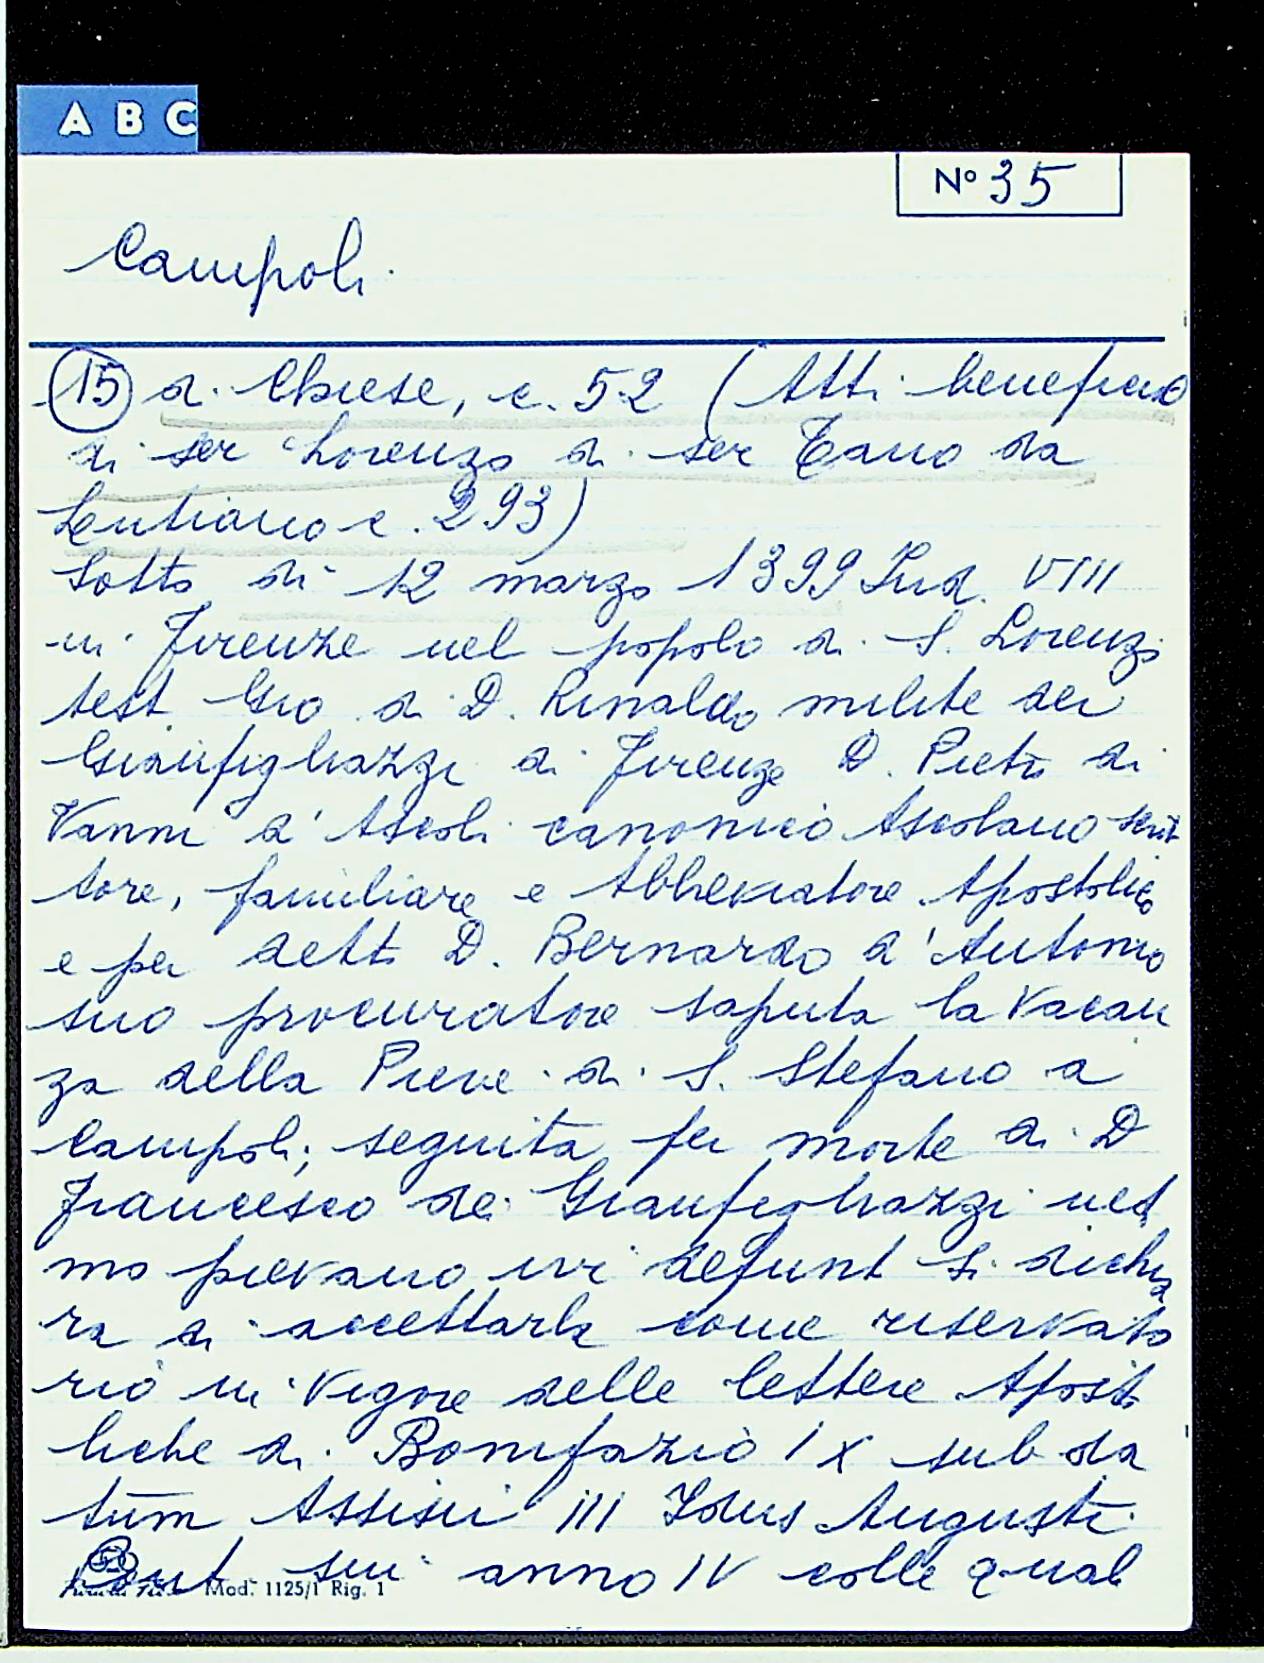 A B C
No 35
Campoli
15 di Chiese, c. 52 (Atti beneficio
di ser Lorenzo di ser Tano da
Lutiano c. 293)
Sotto dì 12 marzo 1399 Ind. VIII
in Firenze nel popolo di S. Lorenzo
test. Gio di D. Rinaldo milite dei
Gianfigliazzi di Firenze D. Pietro di
Vanni d'Ascoli canonico Ascolano scrit
tore, familiare e Abbreviatore Apostolico
e per detto D. Bernardo d'Antonio
suo procuratore saputa la vacan
za della Pieve di S. Stefano a
Campoli; seguita per morte di D
Francesco de Gianfigliazzi
mo pievano ivi defunt si dichia
ra di accettarla come riservato
rio in vigore delle lettere Aposto
liche di Bonifazio IX sub da
tum Assisii III Idus Augusti
Pont sui anno IV colle quali
Mod. 1125/1 Rig. 1